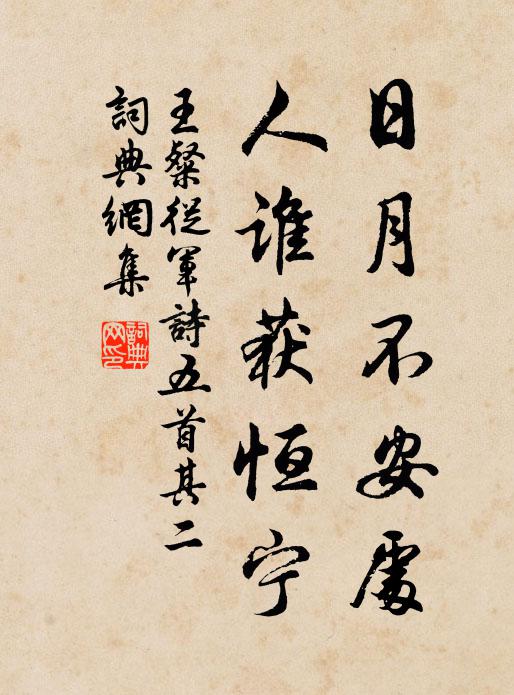 日月不安處
人誰获恒宁
王粲從軍詩五首其二
詞典網集
詞典網印